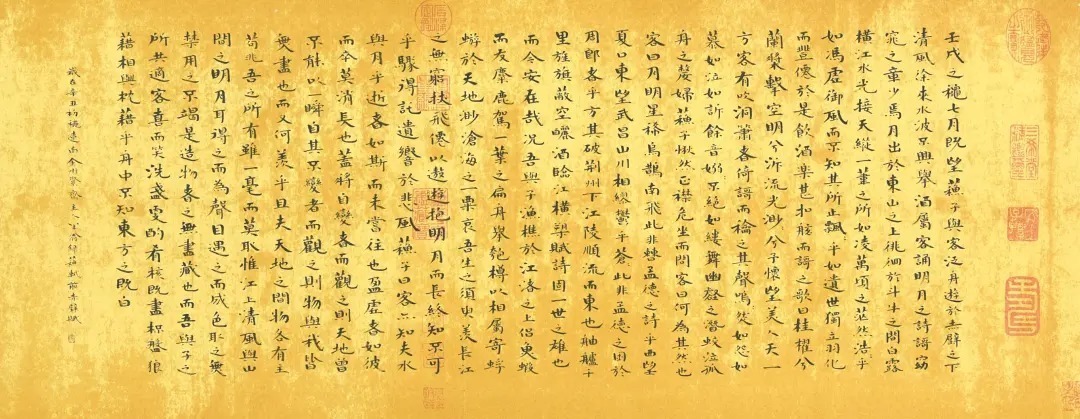 壬戌之穐七月既望蘇子與客泛舟遊於赤壁之下
清風徐來水波不興舉酒屬客誦明月之詩謌窈
窕之章少焉月出於東山之上徘徊於斗牛之間白露
橫江水光接天縱一葦之所如凌萬頃之茫然浩乎
如馮虛御風而不知其所止飄乎如遺世獨立羽化
而登僊於是飲酒樂甚扣舷而謌之歌曰桂櫂兮
蘭槳擊空明兮泝流光渺兮予懷望美人兮天一
方客有吹洞簫者倚謌而龢之其聲嗚然如怨如
慕如泣如訴餘音嫋不絕如縷舞幽壑之潛蛟泣孤
舟之嫠婦蘇子愀然正襟危坐而問客曰何為其然也
客曰月明星稀烏鵲南飛此非曹孟德之詩乎西望
夏口東望武昌山川相繆鬱乎蒼此非孟德之困於
周郎者乎方其破荊州下江陵順流而東也舳艫千
里旌旗蔽空釃酒臨江橫槊賦詩固一世之雄也
而今安在哉況吾與子漁樵於江渚之上侶魚蝦
而友麋鹿駕一葉之扁舟舉匏樽以相屬寄蜉
蝣於天地渺滄海之一粟哀吾生之須臾羨長江
之無窮挾飛僊以遨遊抱明月而長終知不可
乎驟得託遺響於悲風蘇子曰客亦知夫水
與月乎逝者如斯而未嘗往也盈虛者如彼
而卒莫消長也蓋將自變者而觀之則天地曾
不能以一瞬自其不變者而觀之則物與我皆
無盡也而又何羨乎且夫天地之間物各有主
苟非吾之所有雖一毫而莫取惟江上清風與山
間之明月耳得之而為聲目遇之而成色取之無
禁用之不竭是造物者之無盡藏也而吾與子之
所共適客喜而笑洗盞更酌肴核既盡杯盤狼
藉相與枕藉乎舟中不知東方之既白
歲在辛丑初 蘇軾前赤壁賦